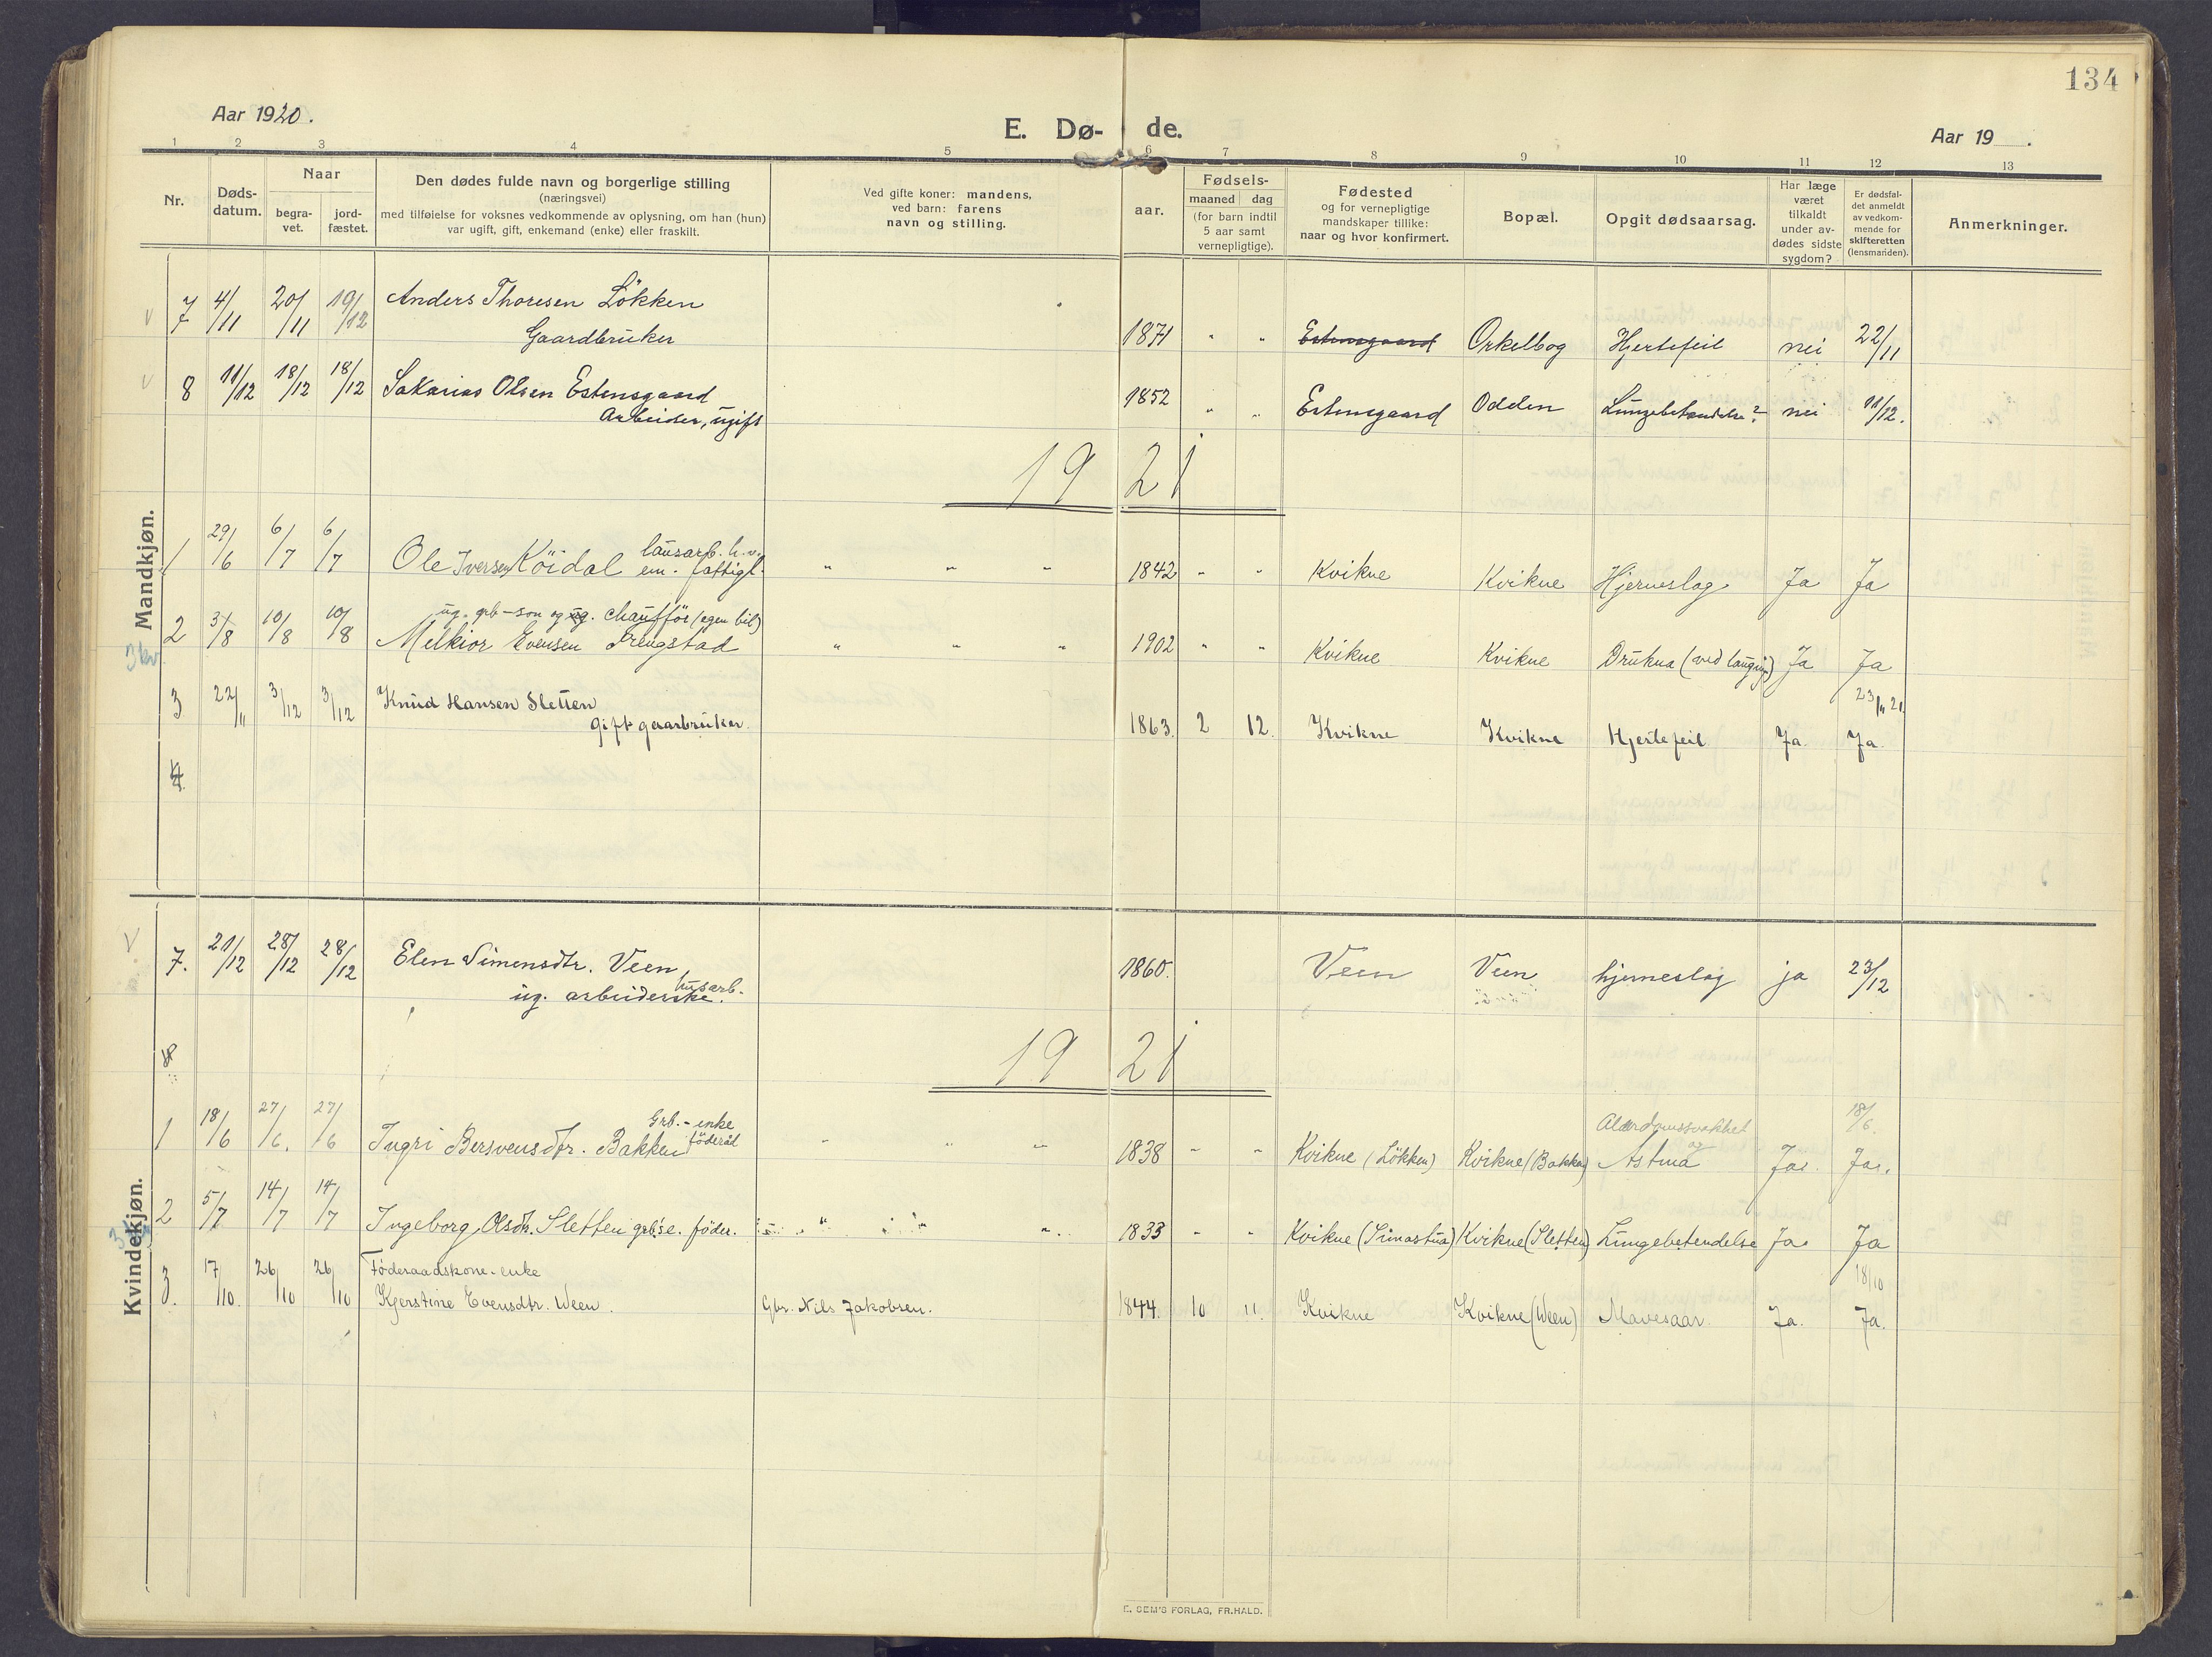 134
Aar 1920.
E. Dø- de.
Aar 19 .
1 2 3 4 5 6 7 8 9 10 11 12 13
Nr.
Døds-
datum.
Naar
begra-
vet.
jord-
fæstet.
Den dødes fulde navn og borgerlige stilling
(næringsvei)
med tilføielse for voksnes vedkommende av oplysning, om han (hun)
var ugift, gift, enkemand (enke) eller fraskilt.
Ved gifte koner: mandens,
ved barn: farens
navn og stilling.
aar.
Fødsels-
maaned dag
(for barn indtil
5 aar samt
vernepligtige).
Fødested
og for vernepligtige
mandskaper tillike:
naar og hvor konfirmert.
Bopæl.
Opgit dødsaarsag.
Har læge
været
tilkaldt
under av-
dødes sidste
sygdom?
Er dødsfal-
det anmeldt
av vedkom-
mende for
skifteretten
(lensmanden).
Anmerkninger.
Mandkjøn.
3 kv
V 7 4/11 20/11 19/12 Anders Thoresen Løkken
Gaardbruker 1871 " " Estensgaard Orkelbog Hjertefeil nei 22/11
V 8 11/12 18/12 18/12 Sakarias Olsen Estensgaard
Arbeider, ugift 1852 " " Estensgaard Odden Lungebetændelse? nei 11/12.
19 21
lausarb. h.v.
1 29/6 6/7 6/7 Ole Iversen Köidal em. fattigl. " " " 1842 " " Kvikne Kvikne Hjerneslag Ja Ja
ug. grb-son og ug. chaufför (egen bil)
2 3/8 10/8 10/8 Melkior Evensen Frengstad " " " 1902 " " Kvikne Kvikne Drukna (ved laugning) Ja Ja
23/11 21
3 22/11 3/12 3/12 Knud Hansen Sletten
gift gaarbruker. 1863. 2 12. Kvikne Kvikne Hjertefeil Ja. Ja.
4.
Kvindekjøn.
V 7. 21/12 28/12 28/12 Elen Simensdtr. Veen,
ug. arbeiderske. husarb. 1860. Veen Veen hjerneslag ja 23/12
8
19 21
Grb.-enke
1 18/6 27/6. 27/6 Ingri Bersvensdtr. Bakken föderåd " " " 1838 " " Kvikne (Løkken) Kvikne (Bakken) Alderdomssvakhet og Astma Ja. 18/6. Ja.
2 5/7 14/7 14/7 Ingeborg Olsdtr. Sletten grb.se. föder. " " " 1833 " " Kvikne (Simastua) Kvikne (Sletten) Lungebetendelse Ja. Ja
Föderaadskone-enke
18/10
3. 17/10. 26/10 26/10 Kjerstine Evensdtr. Ween. Gbr. Nils Jakobsen. 1844. 10 11. Kvikne Kvikne (Ween) Mavesaar. Ja. Ja.
E. SEM'S FORLAG, FR.HALD.